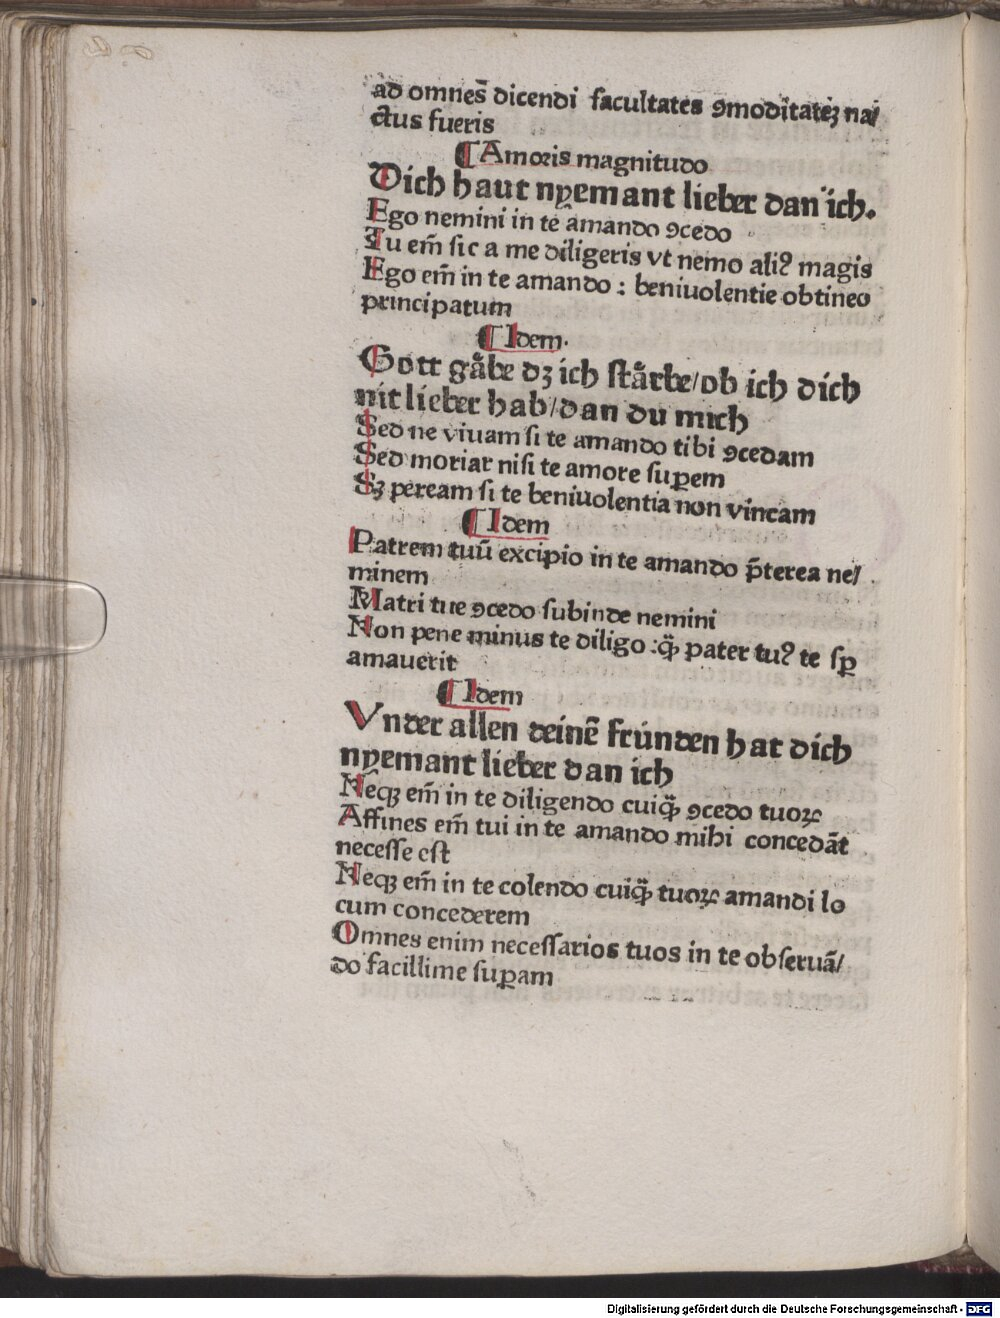 ad omnes̄ dicendi facultates ꝯmodi̅tateꝫ na/
ctus fueris
¶ Amoris magnitudo
Dich haut nyemant lieber dan ich.
Ego nemini in te amando ꝯcedo
Tu em̄ sic a me diligeris vt nemo aliꝰ magis
Ego em̄ in te amando : beniuolentie obtineo
principatum
¶ Idem.
Gott gåbe dꝫ ich stårbe/ob ich dich
nit lieber hab/dan du mich
Sed ne viuam si te amando tibi ꝯcedam
Sed moriar nisi te amore suꝑem
Sꝫ peream si te beniuolentia non vincam
¶ Idem
Patrem tuū excipio in te amando p̄terea ne/
minem
Matri tue ꝯcedo subinde nemini
Non pene minus te diligo :q̄ꝫ pater tuꝰ te sꝑ
amauerit
¶ Idem
Vnder allen deinē frúnden hat dich
nyemant lieber dan ich
Neqꝫ em̄ in te diligendo cuiq̄ꝫ ꝯcedo tuoꝝ
Affines em̄ tui in te amando mihi concedāt
necesse est
Neqꝫ em̄ in te colendo cuiq̄ꝫ tuoꝝ amandi lo
cum concederem
Omnes enim necessarios tuos in te obseruā/
do facillime suꝑam
Digitalisierung gefördert durch die Deutsche Forschungsgemeinschaft - DFG